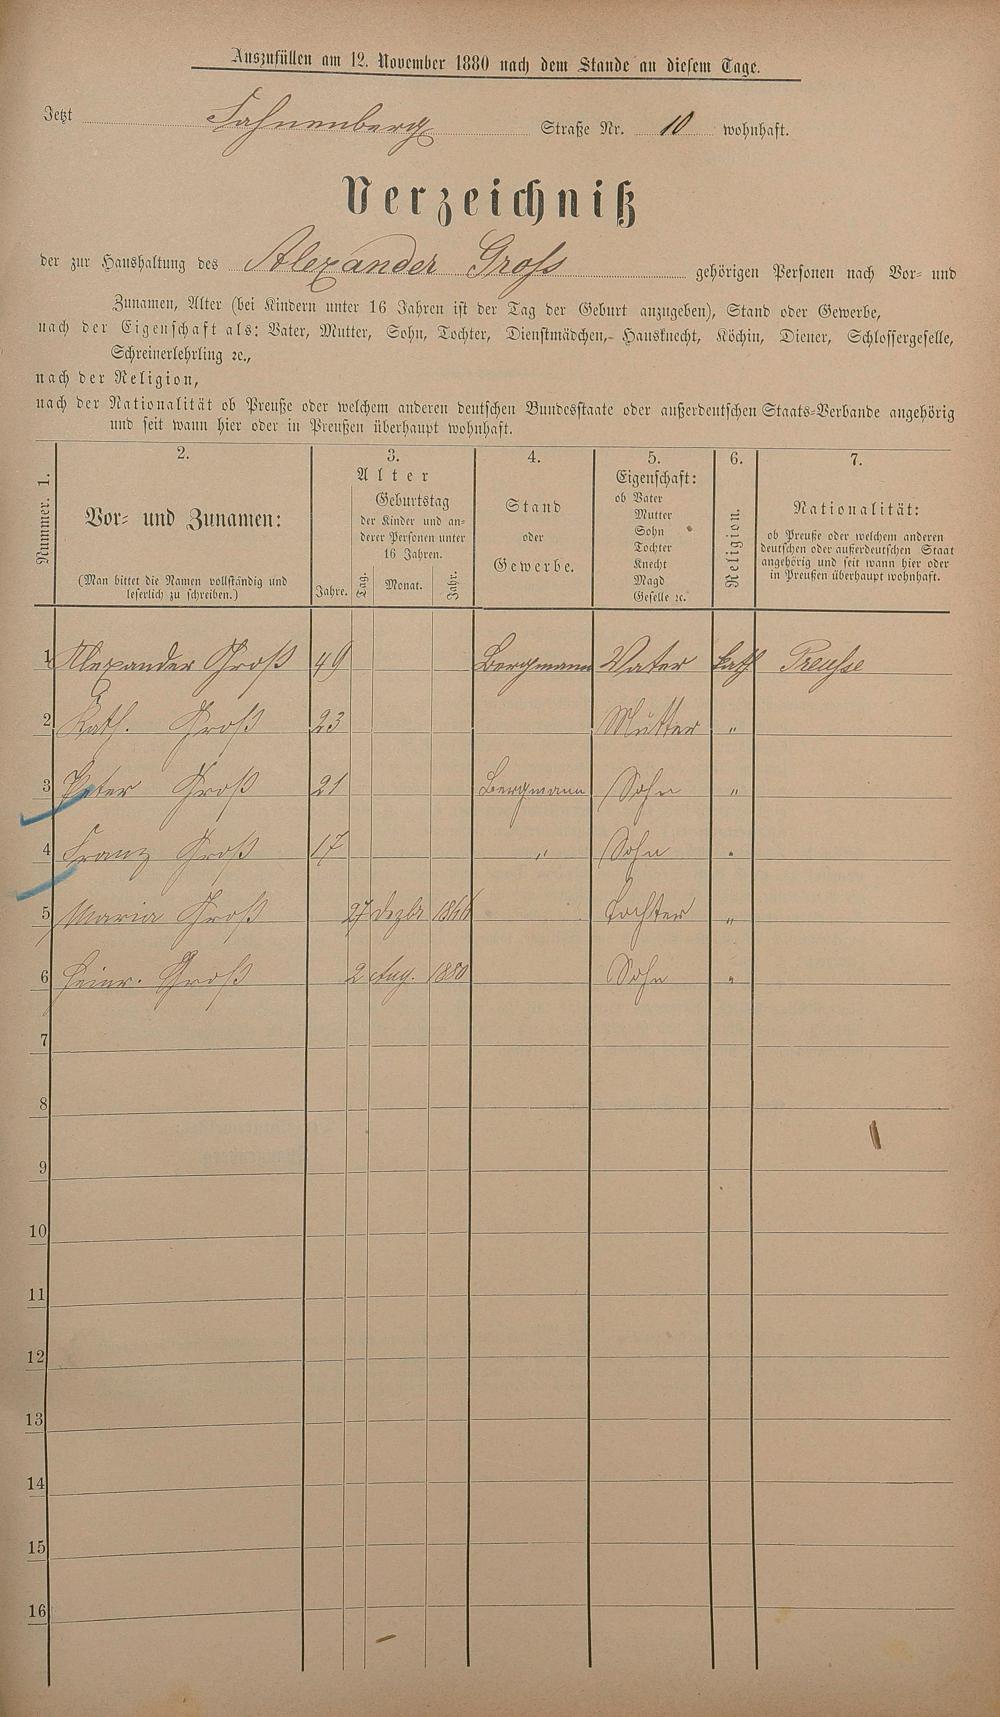 Auszufüllen am 12. November 1880 nach dem Stande an diesem Tage.
Jetzt Fahnenberg Straße Nr. 10 wohnhaft.
Verzeichniß
der zur Haushaltung des Alexander Gross gehörigen Personen nach Vor- und
Zunamen, Alter (bei Kindern unter 16 Jahren ist der Tag der Geburt anzugeben), Stand oder Gewerbe,
nach der Eigenschaft als: Vater, Mutter, Sohn, Tochter, Dienstmädchen,- Hausknecht, Köchin, Diener, Schlossergeselle,
Schreinerlehrling ꝛc.,
nach der Religion,
nach der Nationalität ob Preuße oder welchem anderen deutschen Bundesstaate oder außerdeutschen Staats-Verbande angehörig
und seit wann hier oder in Preußen überhaupt wohnhaft.
Nummer. 1.
2.
Vor- und Zunamen:
(Man bittet die Namen vollständig und
leserlich zu schreiben.)
3.
Alter
Jahre.
Geburtstag
der Kinder und an-
derer Personen unter
16 Jahren.
Tag. Monat. Jahr.
4.
Stand
oder
Gewerbe.
5.
Eigenschaft:
ob Vater
Mutter
Sohn
Tochter
Knecht
Magd
Geselle ꝛc.
6.
Religion.
7.
Nationalität:
ob Preuße oder welchem anderen
deutschen oder außerdeutschen Staat
angehörig und seit wann hier oder
in Preußen überhaupt wohnhaft.
1 Alexander Groß 49 Bergmann Vater kath Preusse
2 Kath. Groß 23 Mutter "
3 Peter Groß 21 Bergmann Sohn "
4 Franz Groß 17 " Sohn "
5 Maria Groß 27 Dezbr 1866 Tochter "
6 Heinr. Groß 2 Aug. 1880 Sohn "
7
8
9
10
11
12
13
14
15
16